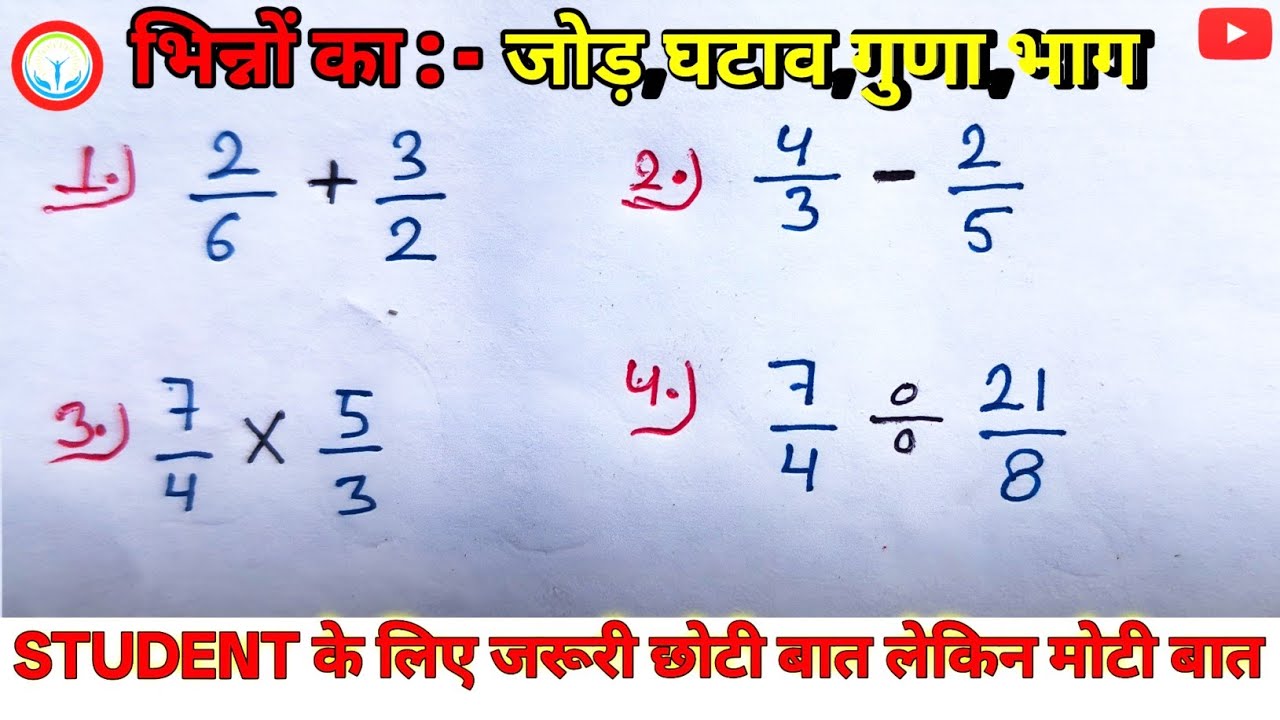 भिन्नों का :- जोड़,घटाव,गुणा,भाग
1.) 2/6 + 3/2
2.) 4/3 - 2/5
3.) 7/4 × 5/3
4.) 7/4 ÷ 21/8
STUDENT के लिए जरूरी छोटी बात लेकिन मोटी बात